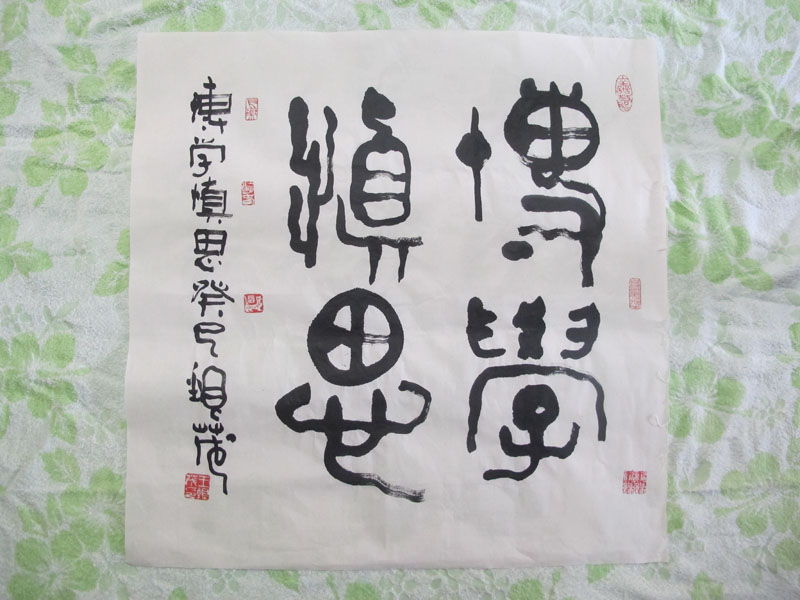 博學
慎思
博学慎思癸巳祖茂